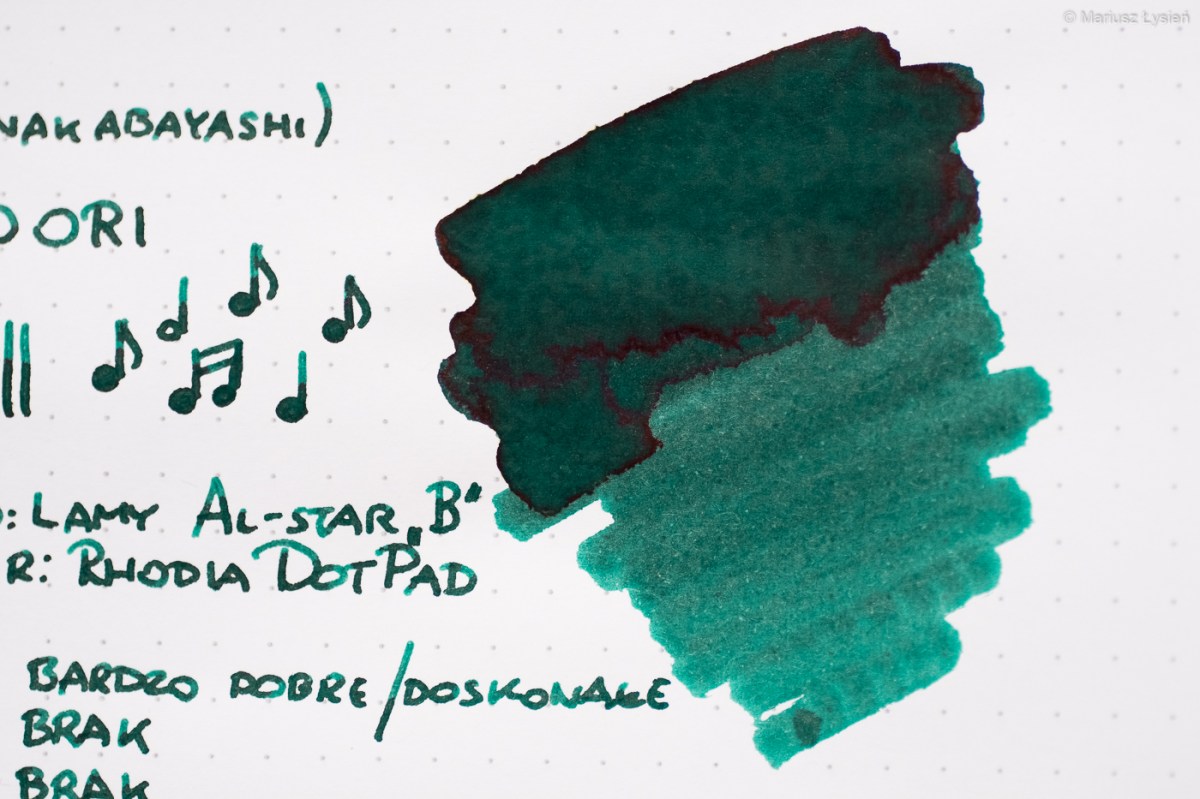 © Mariusz Łysień
NAKABAYASHI)
DORI
: LAMY AL-STAR „B"
R: RHODIA DOTPAD
BARDZO DOBRE/DOSKONAŁE
BRAK
BRAK